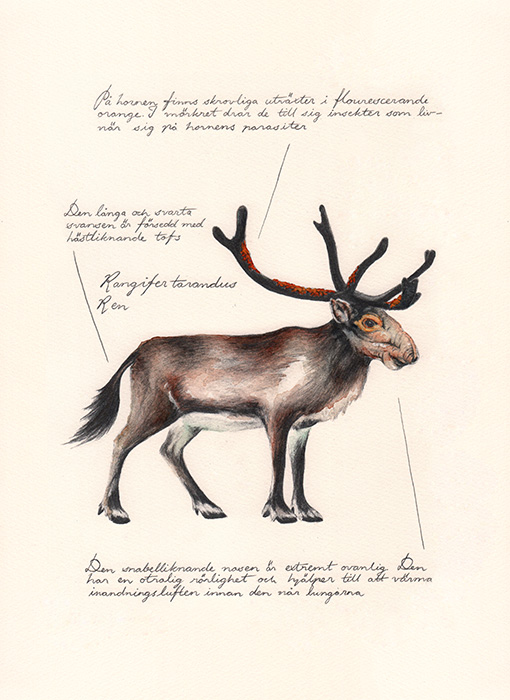 På hornen finns skrovliga utväxter i flourescerande
orange. I mörkret drar de till sig insekter som liv-
när sig på hornens parasiter
Den långa och svarta
svansen är försedd med
hästliknande tofs
Rangifer tarandus
Ren
Den snabelliknande nasen är extremt ovanlig Den
har en otralig rörlighet och hjälper till att värma
inandningsluften innan den når lungorna